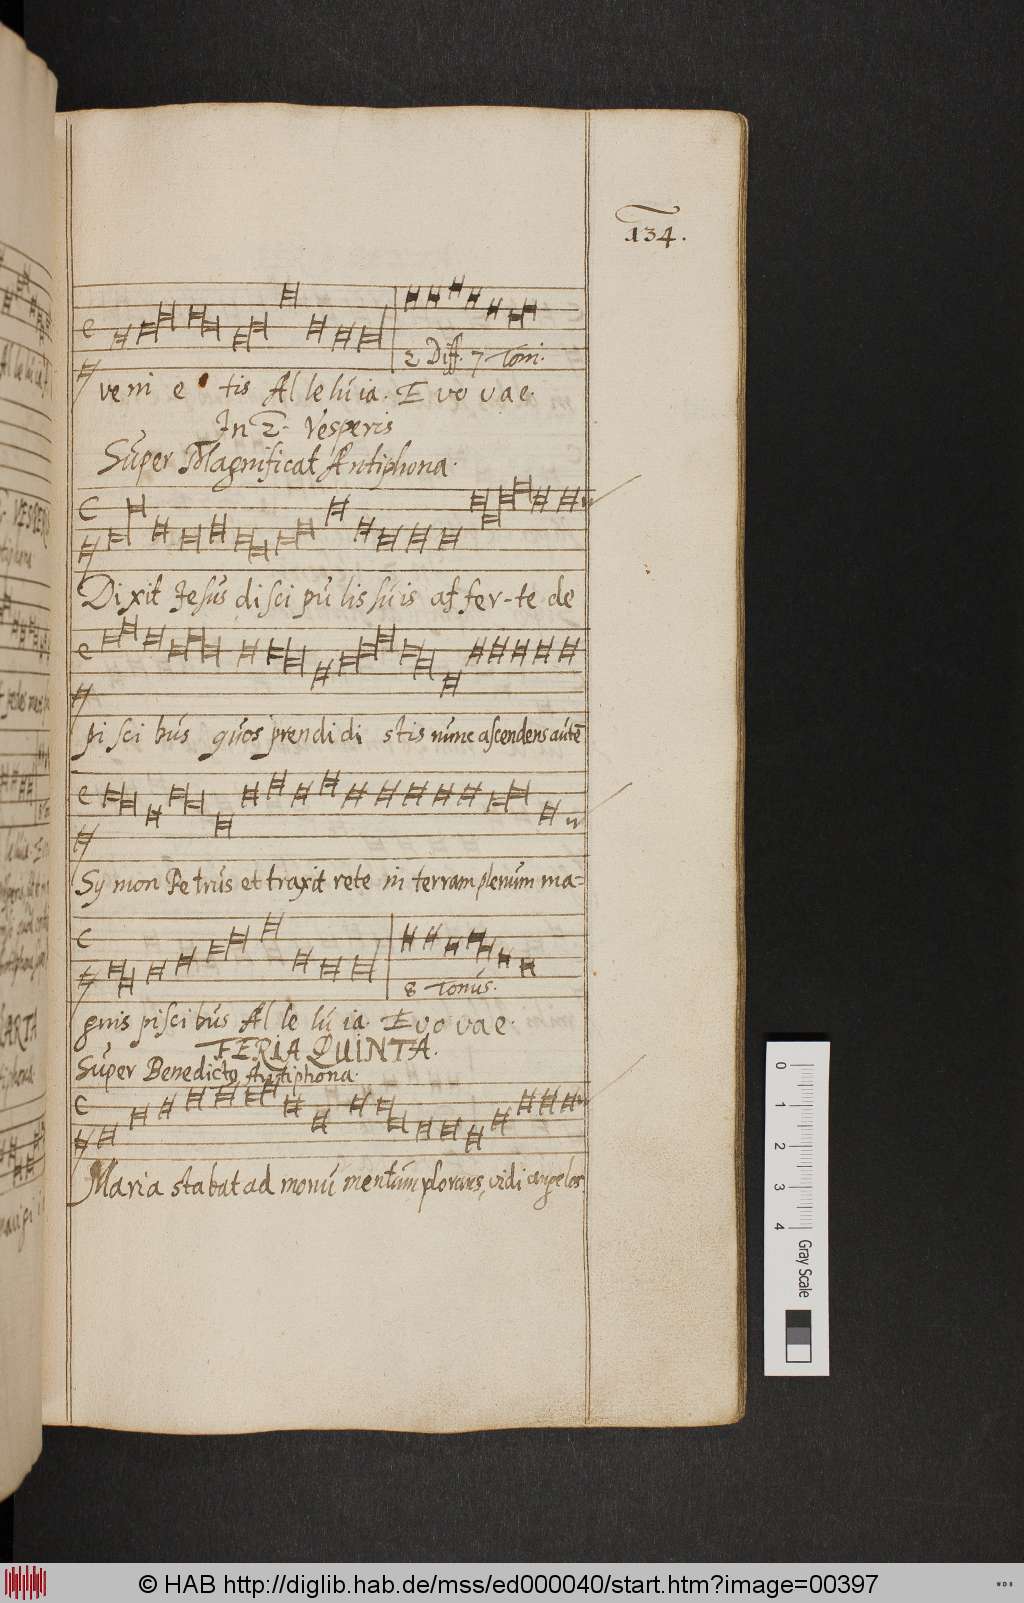 134.
2 Diff. 7 Toni.
veni e tis Al le lú ia. E vo v a e.
In 2. Vesperis
Súper Magnificat Antiphona.
Dixit Jesús di sci pú lis súis af fer-te de
pi sci bús qúos prendidi stis núnc ascendens aútē
Sy mon Petrús et traxit rete in terram plenúm ma=
8 Tonús.
gnis piscibús Al le lú ia. E v o v a e.
FERIA QUINTA.
Súper Benedictg Antiphona.
Maria stabat ad monú mentúm plorans, vidi angelos
0 1 2 3 4 Gray Scale
© HAB http://diglib.hab.de/mss/ed000040/start.htm?image=00397